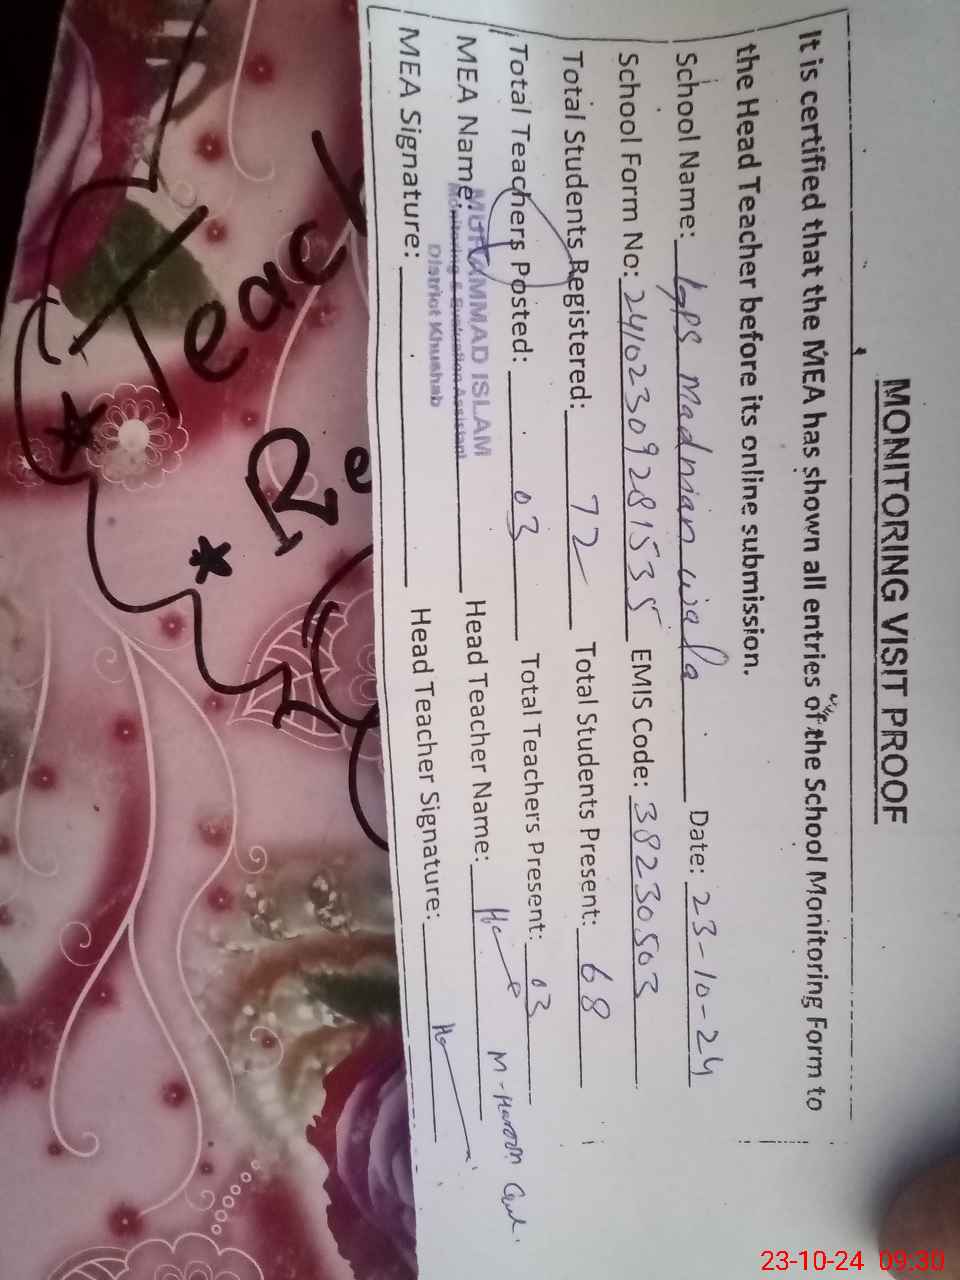 MONITORING VISIT PROOF
It is certified that the MEA has shown all entries of the School Monitoring Form to
the Head Teacher before its online submission.
School Name: GPS Madnian wala Date: 23-10-24
School Form No: 24102309281535 EMIS Code: 38230503
Total Students Registered: 72 Total Students Present: 68
Total Teachers Posted: 03 Total Teachers Present: 03
MEA Name: MUHAMMAD ISLAM Head Teacher Name: M-Haroon
Monitoring & Evaluation Assistant
District Khushab
MEA Signature: Head Teacher Signature:
Teach
Re
23-10-24 09:30